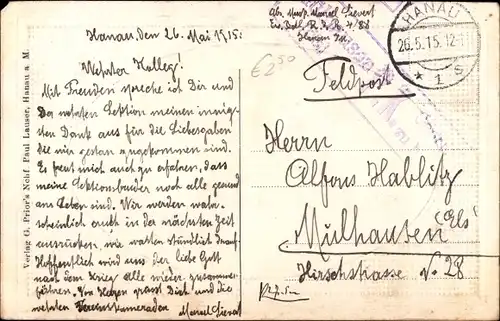 Hanau, den 26. Mai 1915.
Abs. Musk. Marcel Sievert
Hanau
Feldpost
HANAU
26.5.15. 12-1
* 1 s
€ 2 50
Werter Kolleg!
Mit Freuden spreche ich Dir und
Der werten Sektion meinen innig-
sten Dank aus für die Liebesgaben
die mir gestern zugekommen sind.
Es freut mich auch zu erfahren, dass
meine Sektionsbrüder noch alle gesund
am Leben sind. Wir werden wahr-
scheinlich auch in der nächsten Zeit
ausrücken, wir warten stündlich drauf.
Hoffentlich wird uns der liebe Gott
nach dem Krieg alle wieder zusammen
führen. Von Herzen grüsst Dich und die
werten Vereinskameraden
Marcel Sievert
Herrn
Alfons Hablitz
Mülhausen (Els)
Hirschstrasse No 28
Verlag G. Prior's Nchf. Paul Lauser, Hanau a. M.